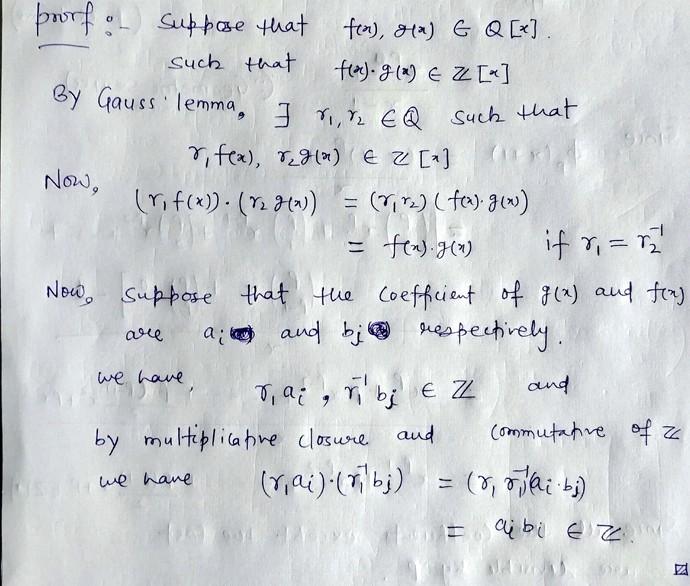 proof :- Suppose that f(x), g(x) ∈ Q[x].
such that f(x)·g(x) ∈ ℤ[x]
By Gauss' lemma, ∃ r₁, r₂ ∈ ℚ such that
r₁f(x), r₂g(x) ∈ ℤ[x]
Now,
(r₁f(x))·(r₂g(x)) = (r₁r₂)(f(x)·g(x))
= f(x)·g(x) if r₁ = r₂⁻¹
Now, suppose that the coefficient of g(x) and f(x)
are aᵢ and bⱼ respectively.
we have, r₁aᵢ, r₁⁻¹bⱼ ∈ ℤ and
by multiplicative closure and commutative of ℤ
we have (r₁aᵢ)·(r₁⁻¹bⱼ) = (r₁ r₁⁻¹)(aᵢ·bⱼ)
= aᵢbᵢ ∈ ℤ.